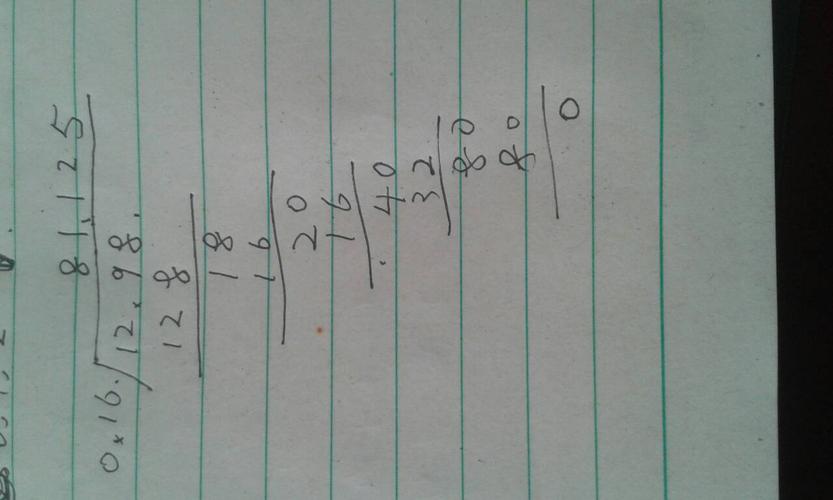 81.125
0.16.√12.98.
128
18
16
20
16
40
32
80
80
0